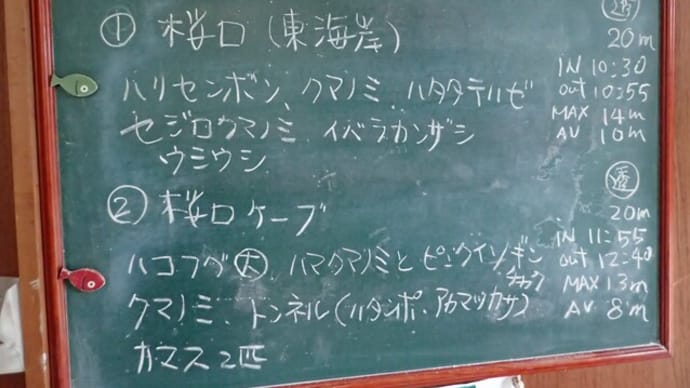 ① 桜口 (東海岸)
透
20m
ハリセンボン、クマノミ、ハタタテハゼ
IN 10:30
out 10:55
セジロクマノミ、イバラカンザシ
MAX 14m
ウミウシ
AV 10m
② 桜口ケーブ
透
20m
ハコフグ大、ハマクマノミとピンクイソギンチャク
IN 11:55
out 12:40
クマノミ、トンネル(ハタンポ、アカマツカサ)
MAX 13m
AV 8m
カマス2匹